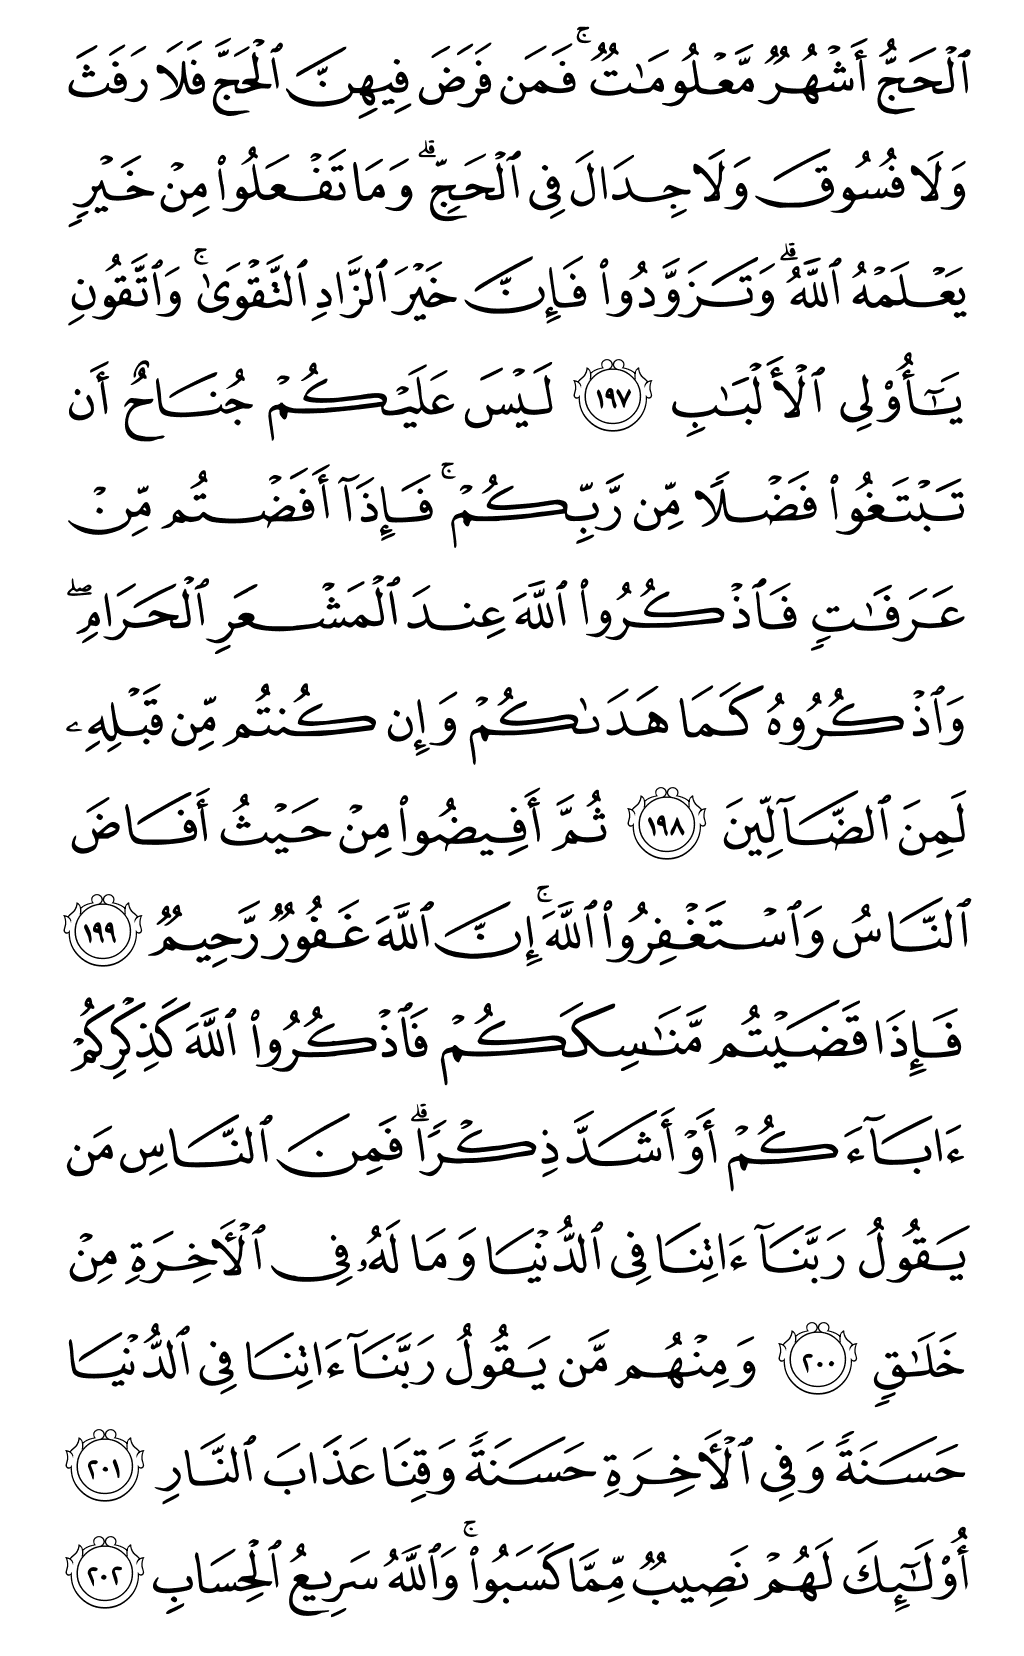 ٱلْحَجُّ أَشْهُرٌ مَّعْلُومَٰتٌ ۚ فَمَن فَرَضَ فِيهِنَّ ٱلْحَجَّ فَلَا رَفَثَ
وَلَا فُسُوقَ وَلَا جِدَالَ فِى ٱلْحَجِّ ۗ وَمَا تَفْعَلُوا۟ مِنْ خَيْرٍ
يَعْلَمْهُ ٱللَّهُ ۗ وَتَزَوَّدُوا۟ فَإِنَّ خَيْرَ ٱلزَّادِ ٱلتَّقْوَىٰ ۚ وَٱتَّقُونِ
يَٰٓأُو۟لِى ٱلْأَلْبَٰبِ ١٩٧ لَيْسَ عَلَيْكُمْ جُنَاحٌ أَن
تَبْتَغُوا۟ فَضْلًا مِّن رَّبِّكُمْ ۚ فَإِذَآ أَفَضْتُم مِّنْ
عَرَفَٰتٍ فَٱذْكُرُوا۟ ٱللَّهَ عِندَ ٱلْمَشْعَرِ ٱلْحَرَامِ ۖ
وَٱذْكُرُوهُ كَمَا هَدَىٰكُمْ وَإِن كُنتُم مِّن قَبْلِهِۦ
لَمِنَ ٱلضَّآلِّينَ ١٩٨ ثُمَّ أَفِيضُوا۟ مِنْ حَيْثُ أَفَاضَ
ٱلنَّاسُ وَٱسْتَغْفِرُوا۟ ٱللَّهَ ۚ إِنَّ ٱللَّهَ غَفُورٌ رَّحِيمٌ ١٩٩
فَإِذَا قَضَيْتُم مَّنَٰسِكَكُمْ فَٱذْكُرُوا۟ ٱللَّهَ كَذِكْرِكُمْ
ءَابَآءَكُمْ أَوْ أَشَدَّ ذِكْرًا ۗ فَمِنَ ٱلنَّاسِ مَن
يَقُولُ رَبَّنَآ ءَاتِنَا فِى ٱلدُّنْيَا وَمَا لَهُۥ فِى ٱلْأَخِرَةِ مِنْ
خَلَٰقٍ ٢٠٠ وَمِنْهُم مَّن يَقُولُ رَبَّنَآ ءَاتِنَا فِى ٱلدُّنْيَا
حَسَنَةً وَفِى ٱلْأَخِرَةِ حَسَنَةً وَقِنَا عَذَابَ ٱلنَّارِ ٢٠١
أُو۟لَٰٓئِكَ لَهُمْ نَصِيبٌ مِّمَّا كَسَبُوا۟ ۚ وَٱللَّهُ سَرِيعُ ٱلْحِسَابِ ٢٠٢